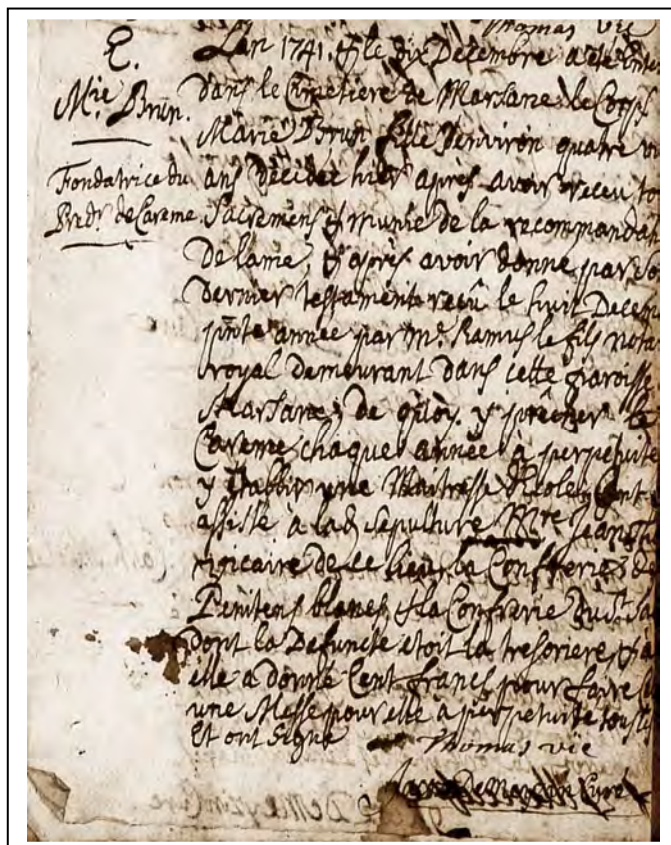 Thomas vie
E.
M.ie Brun.
Fondatrice du
Pred.r de Careme
L'an 1741. & le dix Decembre a eté ente
dans le Cimetiere de Marsane le Corps
Marie Brun fille d'environ quatre vi
ans décédée hier après avoir receu to
Sacremens & munie de la recommandat
De lame, & après avoir donné par so
Dernier testament receû le huit Decem
pnte année par m.e Ramus le fils nota
royal demeurant dans cette paroisse
Marsane, de quoy y prêcher le
Careme chaque année à perpetuite
y établir une Maitresse d'Ecole, ont
assisté à lad sepulture M.re Jean
vicaire de ce lieu, la Confrerie de
Penitens blancs, & la Confrerie du St Sa
dont la Defuncte etoit la tresoriere, & à
elle a donné Cent francs pour faire
une Messe pour elle a perpetuité tous l
Et ont signé
Thomas vie
Curé